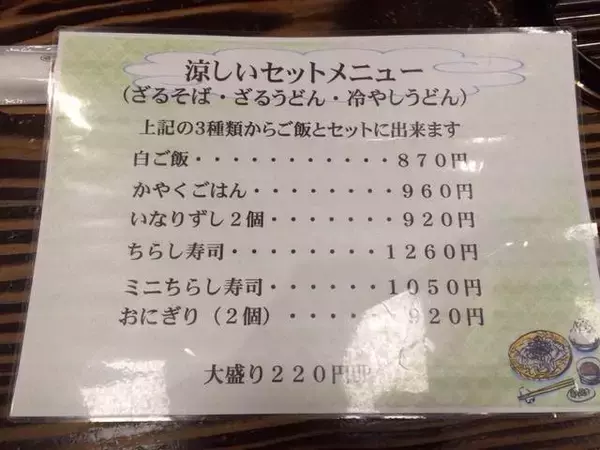 涼しいセットメニュー
(ざるそば・ざるうどん・冷やしうどん)
上記の3種類からご飯とセットに出来ます
白ご飯・・・・・・・・・・・870円
かやくごはん・・・・・・・・960円
いなりずし2個・・・・・・・920円
ちらし寿司・・・・・・・・1260円
ミニちらし寿司・・・・・・1050円
おにぎり(2個)・・・・・・920円
大盛り220円